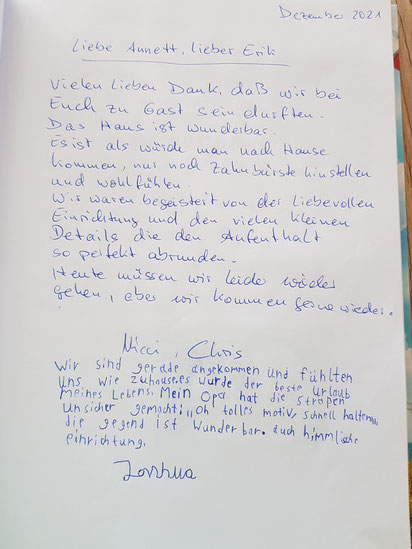 Dezember 2021
Liebe Annett, lieber Erik
Vielen lieben Dank, daß wir bei
Euch zu Gast sein durften.
Das Haus ist wunderbar.
Es ist als würde man nach Hause
kommen, nur noch Zahnbürste hinstellen
und wohlfühlen.
Wir waren begeistert von der liebevollen
Einrichtung und den vielen kleinen
Details die den Aufenthalt
so perfekt abrunden.
Heute müssen wir leide wieder
gehen, aber wir kommen gerne wieder.
Nicci, Chris
Wir sind geradde angekommen und fühlten
uns wie zuhause. es wurde der beste urlaub
meines Lebens. Mein Opa hat die straßen
unsicher gemacht: "oh tolles motiv, schnell halten"
die gegend ist Wunderbar. auch himmlische
einrichtung.